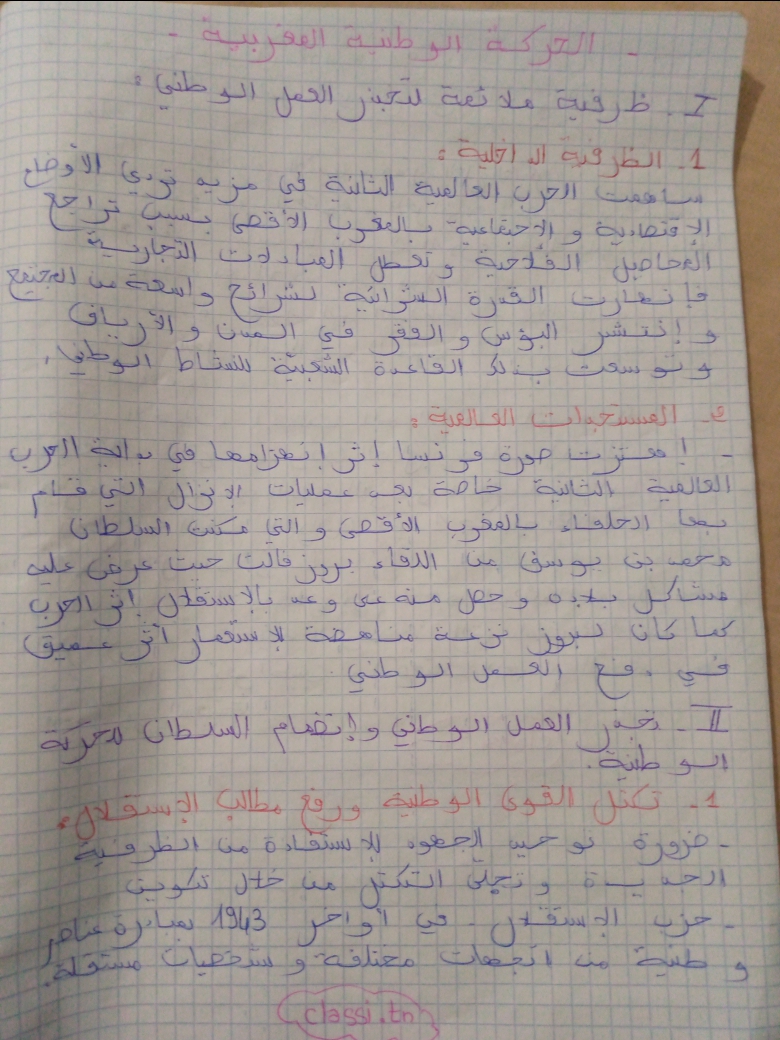 - الحركة الوطنية المغربية -
I - ظرفية ملائمة لتجذر العمل الوطني:
1. الظرفية الداخلية:
ساهمت الحرب العالمية الثانية في مزيد تردي الأوضاع
الإقتصادية و الإجتماعية بالمغرب الأقصى بسبب تراجع
المحاصيل الفلاحية وتعطل المبادلات التجارية
فإنهارت القدرة الشرائية لشرائح واسعة من المجتمع
و إنتشر البؤس و الفقر في المدن و الأرياف
و توسعت بذلك القاعدة الشعبية للنشاط الوطني.
2. المستجدات العالمية:
- إهتزت صورة فرنسا إثر إنهزامها في بداية الحرب
العالمية الثانية خاصة بعد عمليات الإنزال التي قام
بها الحلفاء بالمغرب الأقصى و التي مكنت السلطان
محمد بن يوسف من اللقاء بروزفالت حيث عرض عليه
مشاكل بلاده و حصل منه على وعد بالإستقلال إثر الحرب
كما كان لبروز نزعة مناهضة للإستعمار أثر عميق
في دفع العمل الوطني
II - تجذر العمل الوطني وإنضمام السلطان للحركة
الوطنية.
1. تكتل القوى الوطنية ورفع مطالب الإستقلال:
- ضرورة توحيد الجهود للإستفادة من الظرفية
الجديدة و تجلى التكتل من خلال تكوين
- حزب الإستقلال - في أواخر 1943 بمبادرة عناصر
وطنية من اتجهات مختلفة و شخصيات مستقلة.
classi.tn